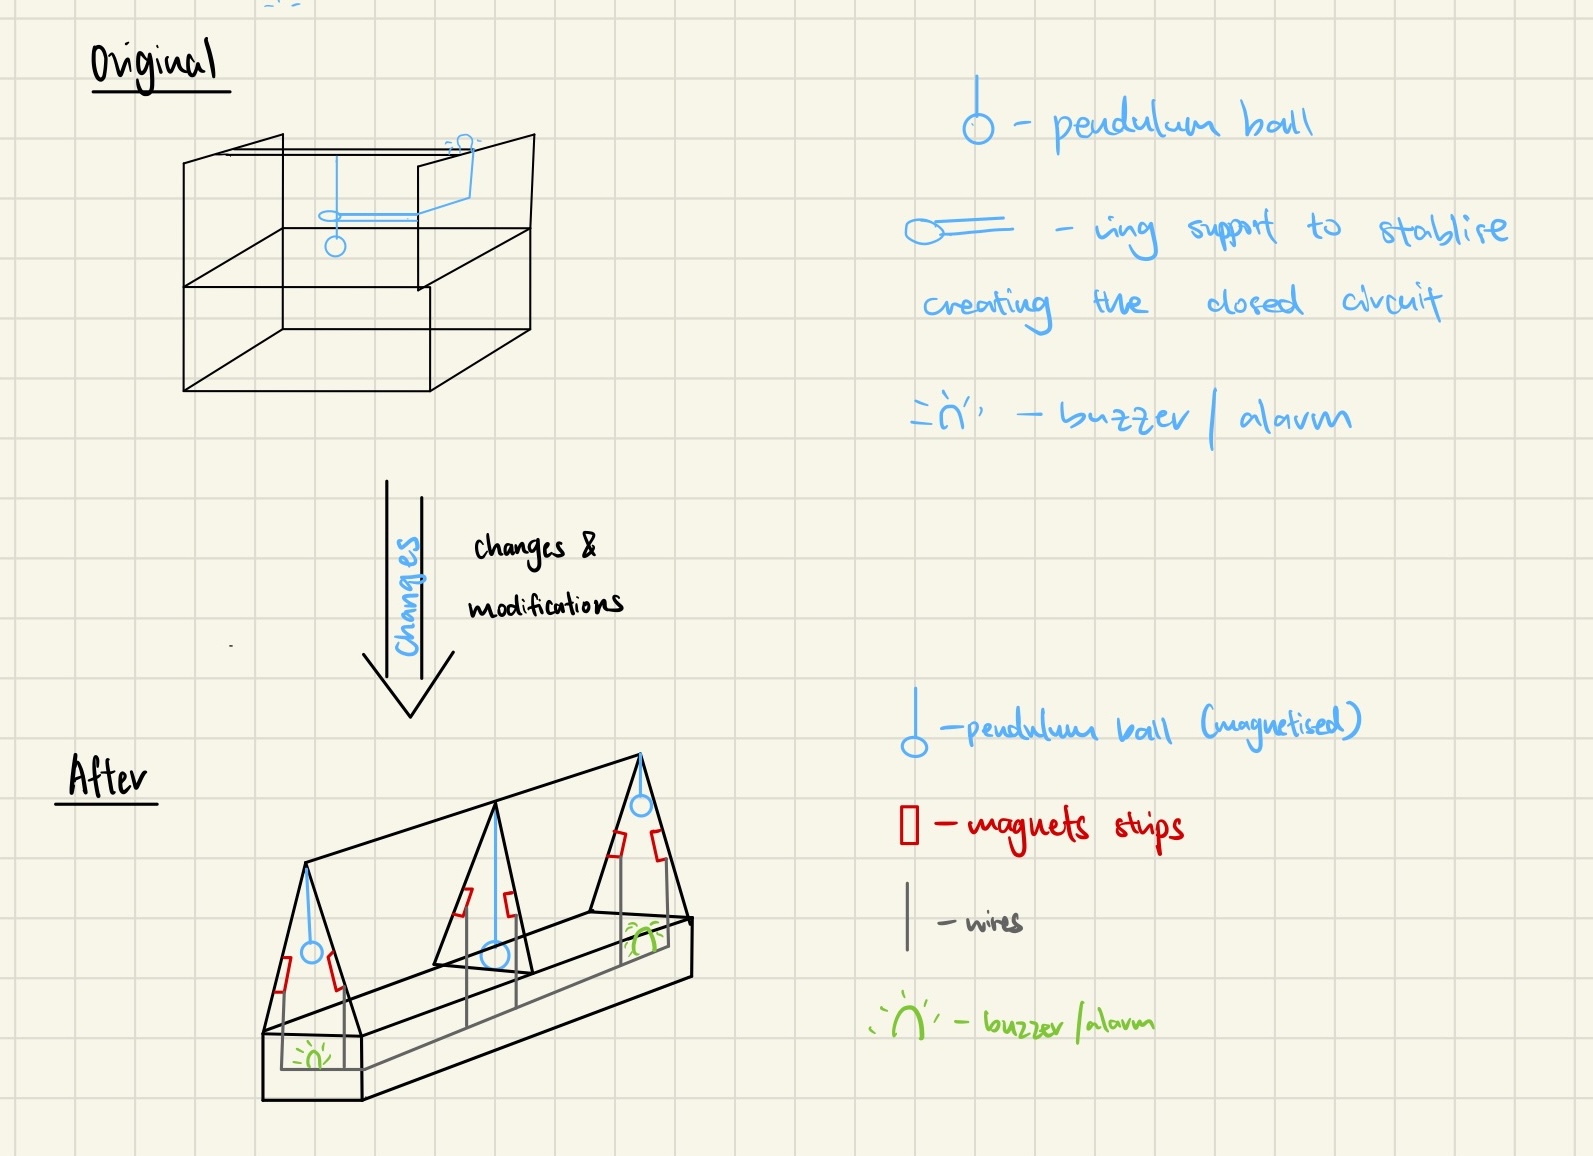 Original
- pendulum ball
- ring support to stablise
creating the closed circuit
- buzzer / alarm
changes
changes &
modifications
After
- pendulum ball (magnetised)
- magnets strips
- wires
- buzzer / alarm